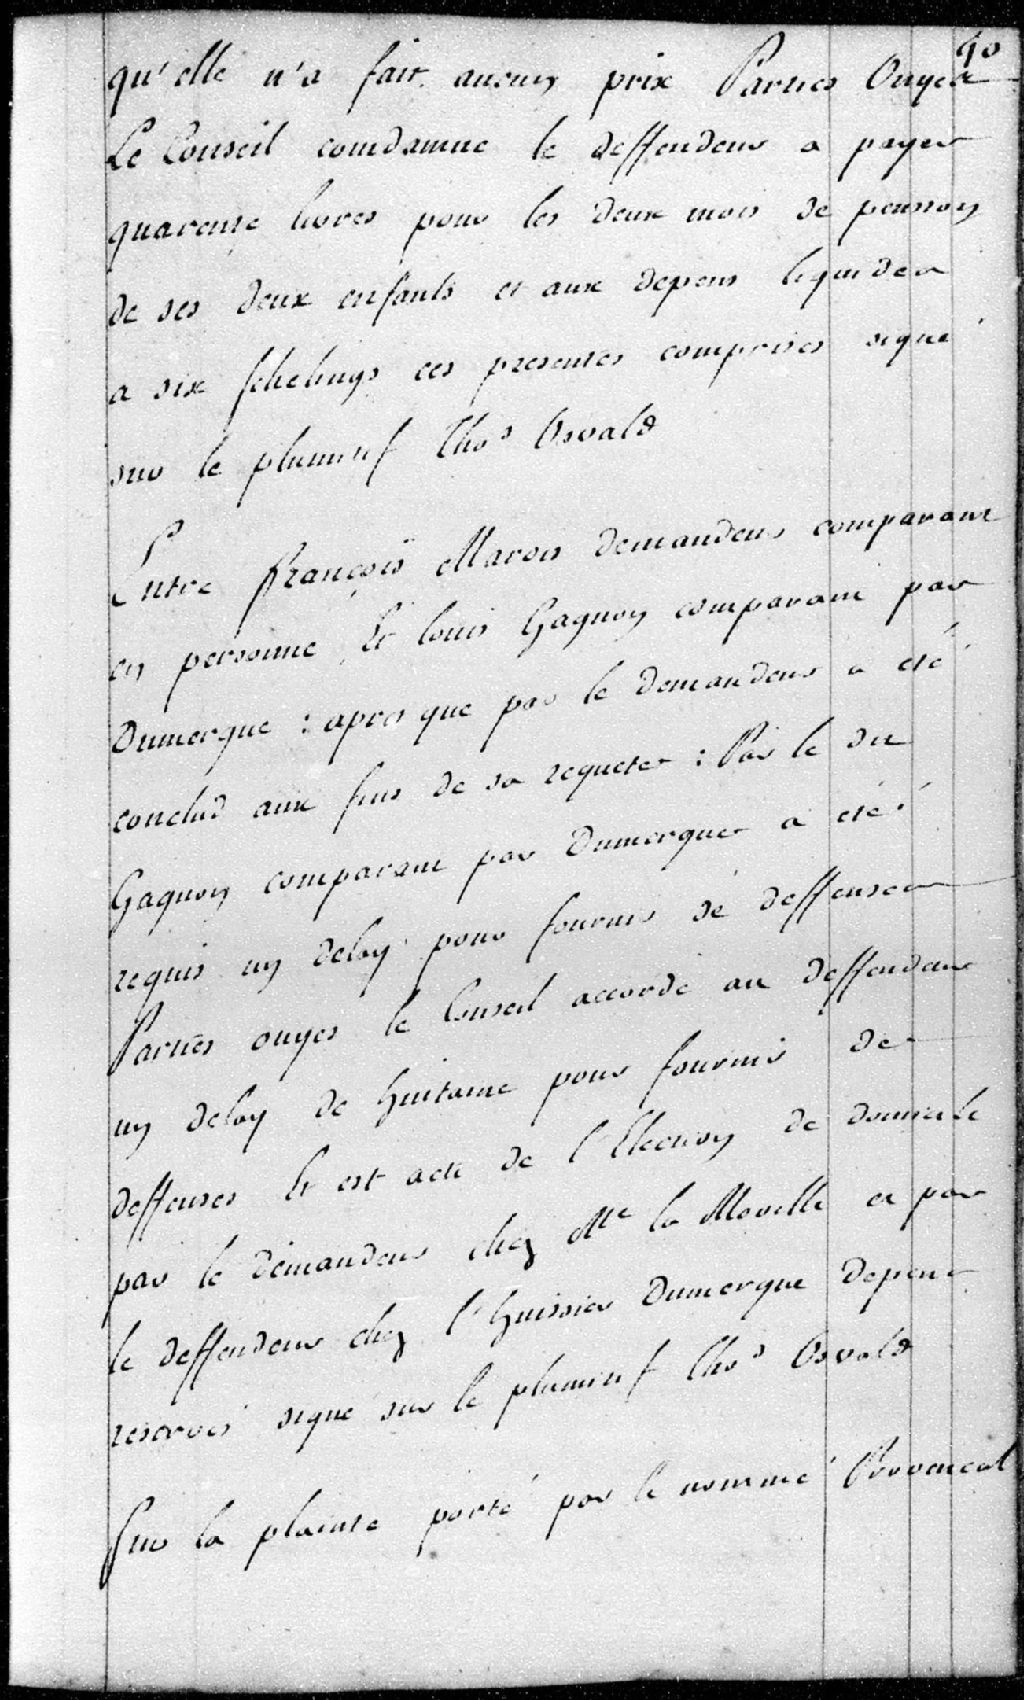 40
qu'elle n'a fait aucun prix Parties Ouyes
Le Conseil condamne le deffendeur a payer
quarente livres pour les deux mois de pension
de ses deux enfants et aux depens liquidés
a six schelings ces presentes comprises signé
sur le plumitif Thos Osvald
Entre François Marois demandeur comparant
en personne Et louis Gagnon comparant par
Dumergue : apres que par le demandeur a eté
conclud aux fins de sa requete : Par le dit
Gagnon comparant par Dumergue a eté
requis un delay pour fournir de deffenses
Parties ouyes le Conseil accorde au deffendeur
un delay de huitaine pour fournir de
deffenses Et est acte de l'Election de domicile
par le demandeur chez Me la Moville et par
le deffendeur chez l'huissier Dumergue depens
reservés signé sur le plumitif Thos Osvald
Sur la plainte porté par le nommé Provencal